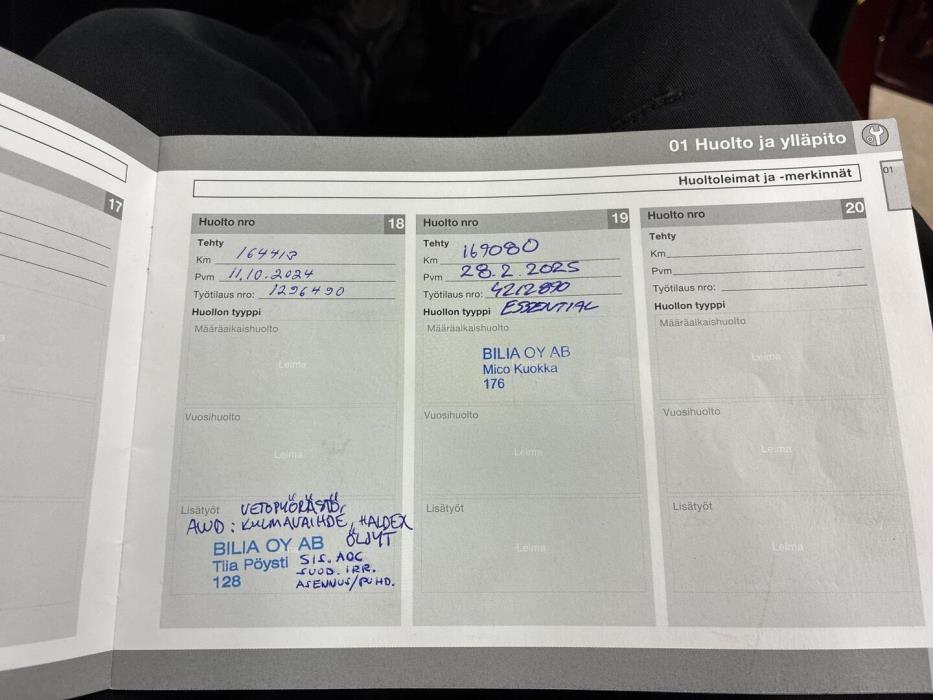 01 Huolto ja ylläpito
01
Huoltoleimat ja -merkinnät
17
Huolto nro 18
Tehty
Km 164418
Pvm 11.10.2024
Työtilaus nro: 1296490
Huollon tyyppi
Määräaikaishuolto
Leima
Vuosihuolto
Leima
Lisätyöt VETOPYÖRÄSTÖ,
AWD: KULMAVAIHDE, HALDEX
ÖLJYT
BILIA OY AB
Tiia Pöysti SIS. AOC
128 SUOD. IRR.
ASENNUS/PUHD.
Huolto nro 19
Tehty
Km 169080
Pvm 28.2.2025
Työtilaus nro: 4212890
Huollon tyyppi ESSENTIAL
Määräaikaishuolto
BILIA OY AB
Mico Kuokka
176
Vuosihuolto
Leima
Lisätyöt
Leima
Huolto nro 20
Tehty
Km
Pvm
Työtilaus nro:
Huollon tyyppi
Määräaikaishuolto
Leima
Vuosihuolto
Leima
Lisätyöt
Leima